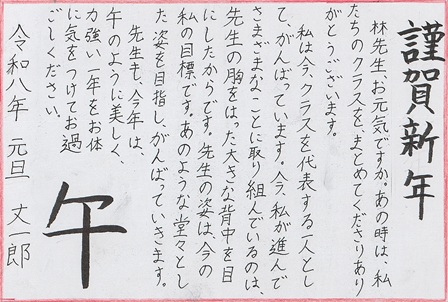 謹賀新年
林先生、お元気ですか。あの時は、私
たちのクラスをまとめてくださりあり
がとうございます。
私は今、クラスを代表する一人とし
て、がんばっています。今、私が進んで
さまざまなことに取り組んでいるのは、
先生の胸をはった大きな背中を目
にしたからです。先生の姿は、今の
私の目標です。あのような堂々とし
た姿を目指し、がんばっていきます。
先生も、今年は、
午のように美しく、
力強い一年をお体
に気をつけてお過
ごしください。
午
令和八年 元旦 文一郎